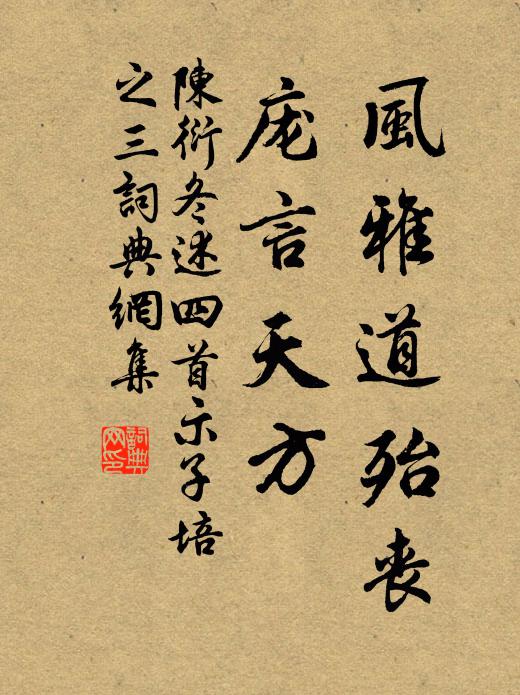 風雅道殆喪
庞言天方
陳衍冬述四首示子培
之三詞典網集
詞典網印